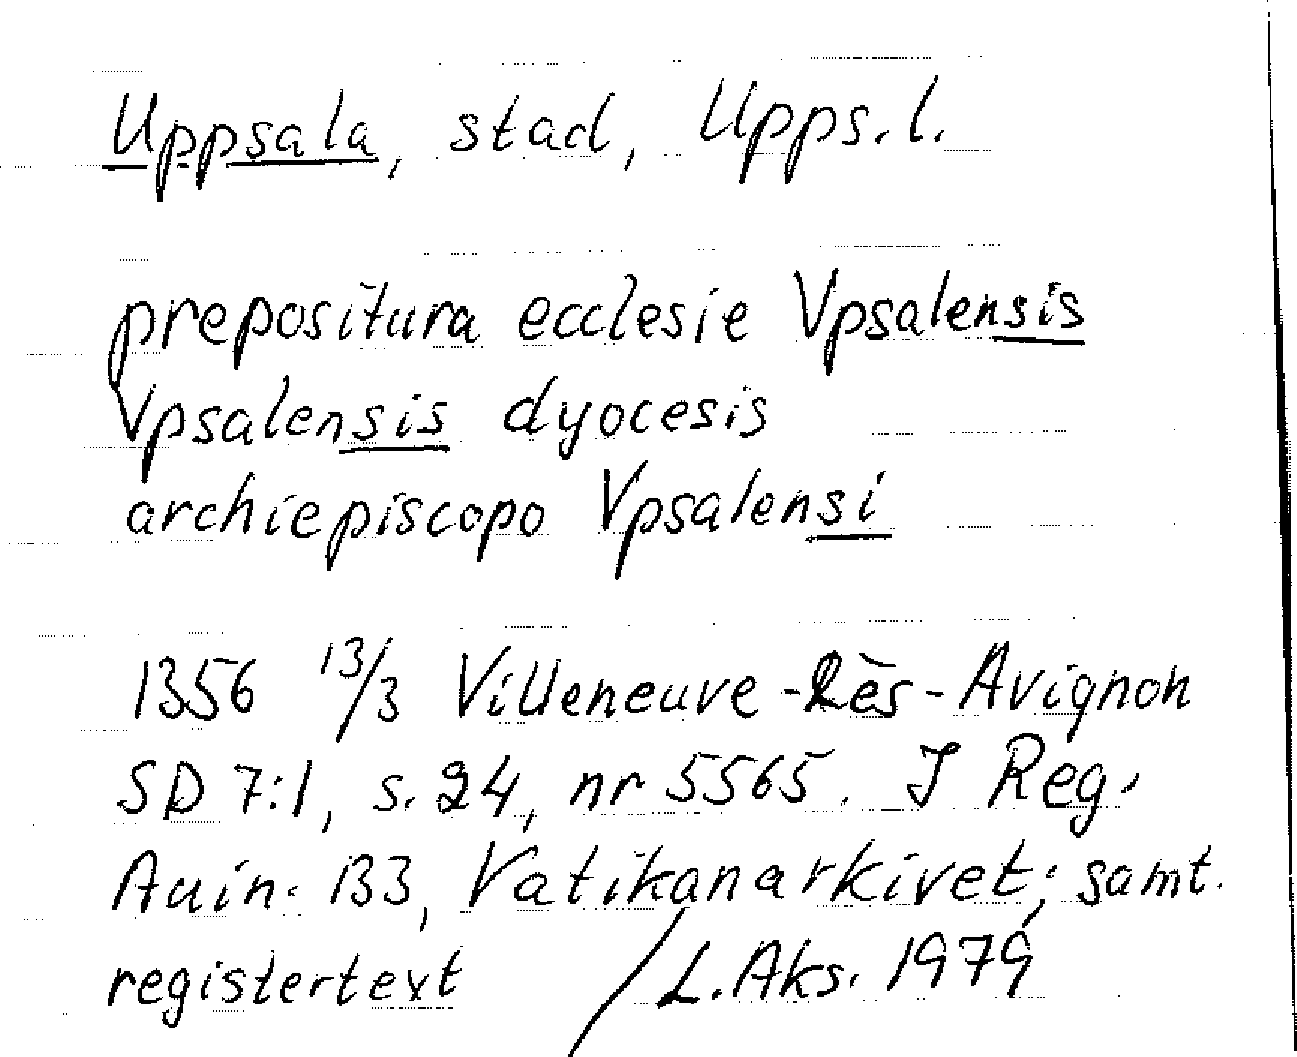 Uppsala, stad, Upps.l.
prepositura ecclesie Vpsalensis
Vpsalensis dyocesis
archiepiscopo Vpsalensi
1356 13/3 Villeneuve-Lès-Avignon
SD 7:1, s. 24, nr 5565. I Reg.
Auin. 133, Vatikanarkivet; samt.
registertext / L. Aks. 1979